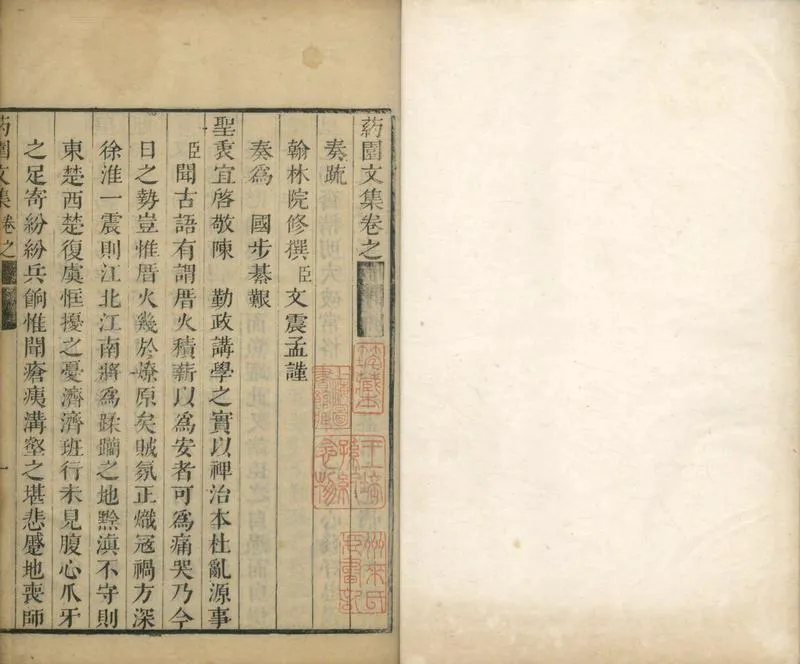 葯園文集卷之
奏疏
翰林院修撰臣文震孟謹
奏爲 國步綦艱
聖衷宜啓敬陳 勤政講學之實以裨治本杜亂源事
臣聞古語有謂厝火積薪以爲安者可爲痛哭乃今
日之勢豈惟厝火幾於燎原矣賊氛正熾寇禍方深
徐淮一震則江北江南將爲蹂躪之地黔滇不守則
東楚西楚復虞恇擾之憂濟濟班行未見腹心爪牙
之足寄紛紛兵餉惟聞瘡痍溝壑之堪悲蹙地喪師
葯園文集 卷之 一